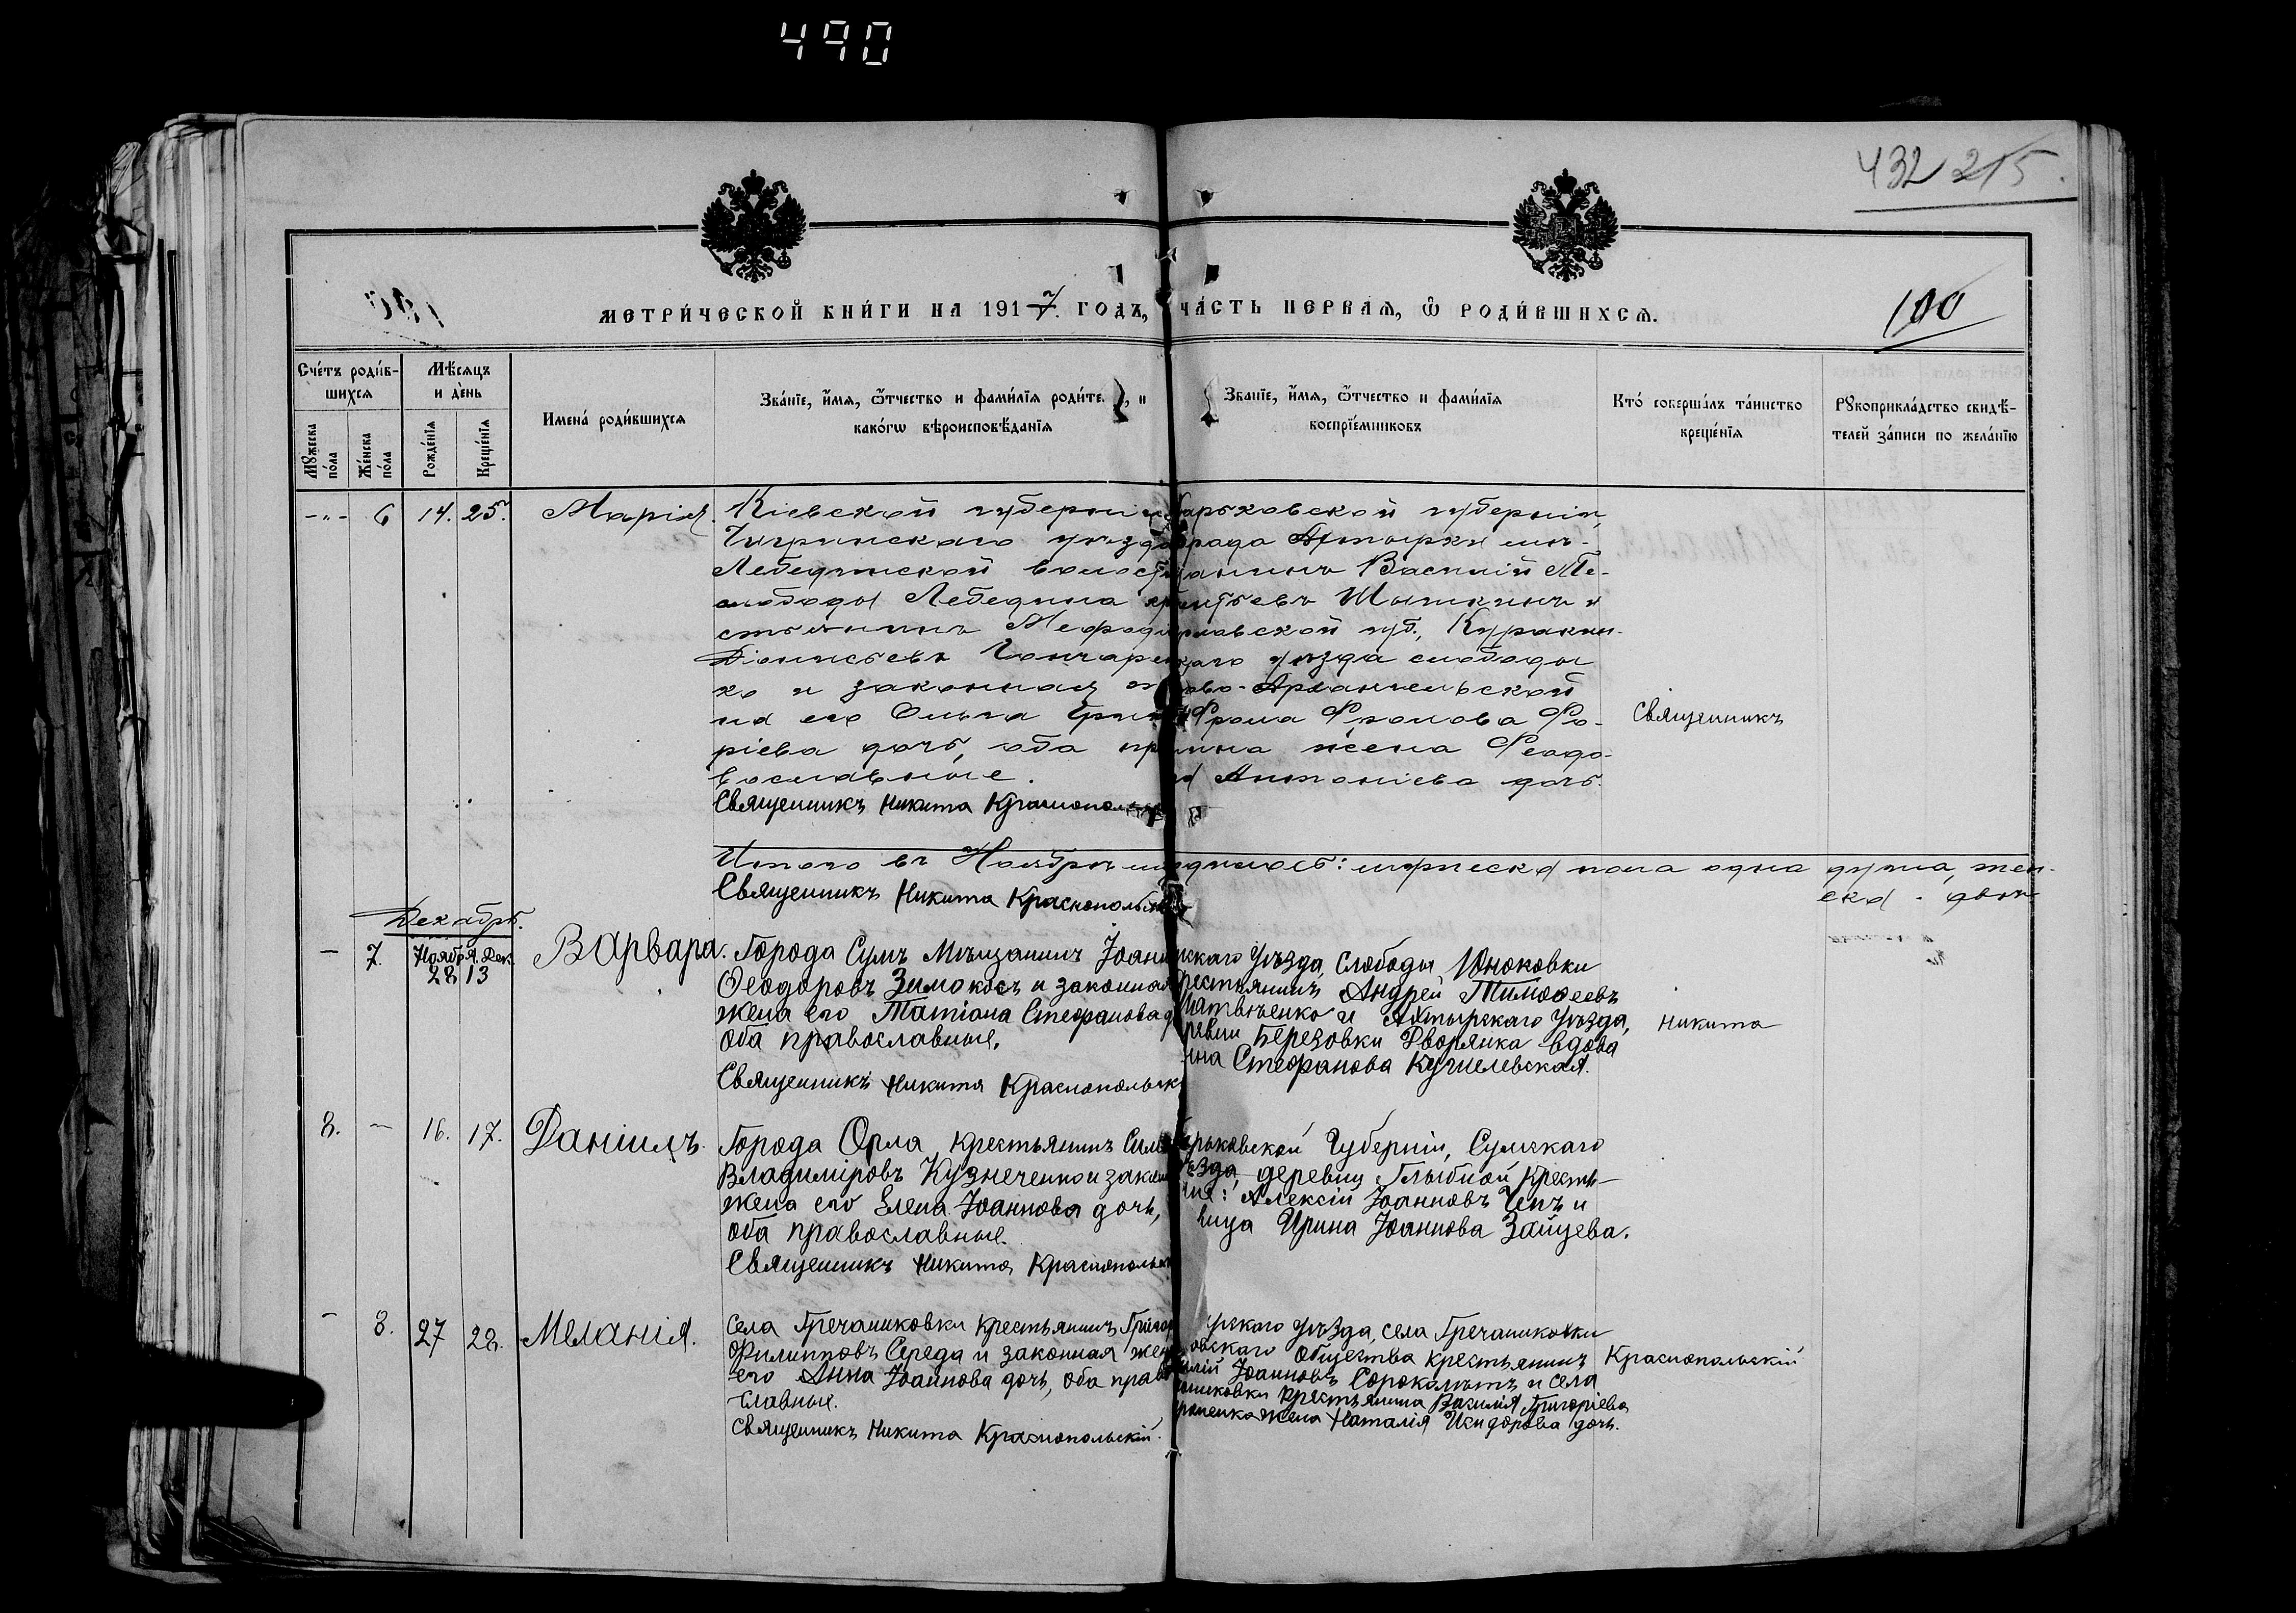 490
432 215.
100
МЕТРИ́ЧЕСКОЙ КНИ́ГИ НА 1917 ГОДЪ, ЧА́СТЬ ПЕРВАЯ, Ѿ РОДИ́ВШИХСЯ.
Сче́тъ роди́в-
шихся
Мѣ́сяцъ
и де́нь
Мꙋ́жеска по́ла
Же́нска по́ла
Рожде́нїя
Креще́нїя
Имена́ роди́вшихся
Зва́нїе, и҆́мя, ѻ҆́тчество и фами́лїя роди́те, и
како́гѡ вѣроисповѣ́данїя
Зва́нїе, и҆́мя, ѻ҆́тчество и фами́лїя
воспрїе́мниковъ
Кто́ соверша́лъ та́инство
креще́нїя
Рꙋкоприкла́дство свидѣ́-
телей за́писи по жела́нїю
-"- 6 14. 25. Марія.
Кіевской губерніи
Чигринскаго уѣзда
Лебединской волости
слободы Лебедина кре
стьянинъ Мефодій
Діонисьевъ Гончарен
ко и законная же
на его Ольга Григо
ріева дочь, оба пра
вославные.
Священникъ Никита Краснополь
арьковской губерніи,
града Ахтырки мѣ-
щанинъ Василій Те-
рентьевъ Шишкинъ и
славской губ., Куракин-
скаго уѣзда слободы
ово-Архангельской
Фрола Фролова Фо-
мина жена Феодо-
Антоніева дочь.
Священникъ
Итого въ Ноябрѣ родилось: мужеска пола одна душа, жен-
ска - двѣ
Священникъ Никита Краснопольск
Декабрь.
- 7. Ноября. Дек.
28 13
Варвара.
Города Сумъ Мѣщанинъ Іоанн
Ѳеодоровъ Зимокосъ и законная
жена его Татіана Стефанова д
оба православные.
Священникъ Никита Краснопольск
скаго Уѣзда, Слободы Юноковки
рестьянинъ Андрей Тимоѳеевъ
Матвѣенко и Ахтырскаго Уѣзда,
ревни Березовки Дворянка вдова
Стефанова Кучелевская.
Никита
8. - 16. 17. Даніилъ.
Города Орла крестьянинъ
Владиміровъ Кузнеченко и закон
жена его Елена Іоаннова дочь,
оба православные.
Священникъ Никита Краснопольск
арьковской Губерніи, Сумскаго
ѣзда, деревни Глыбной Кресть-
Алексій Іоанновъ Чепъ и
вица Ирина Іоаннова Зайцева.
- 8. 27 28. Меланія.
Села Гречаниковки крестьянинъ Григор
Филипповъ Середа и законная жена
его Анна Іоаннова дочь, оба право
славные.
Священникъ Никита Краснопольскій.
рскаго Уѣзда, села Гречаниковки
овскаго Общества крестьянинъ
силій Іоанновъ Сорокалѣтъ и села
аниковки крестьянина Василія Григоріева
жена Наталія Исидорова дочь.
Краснопольскій